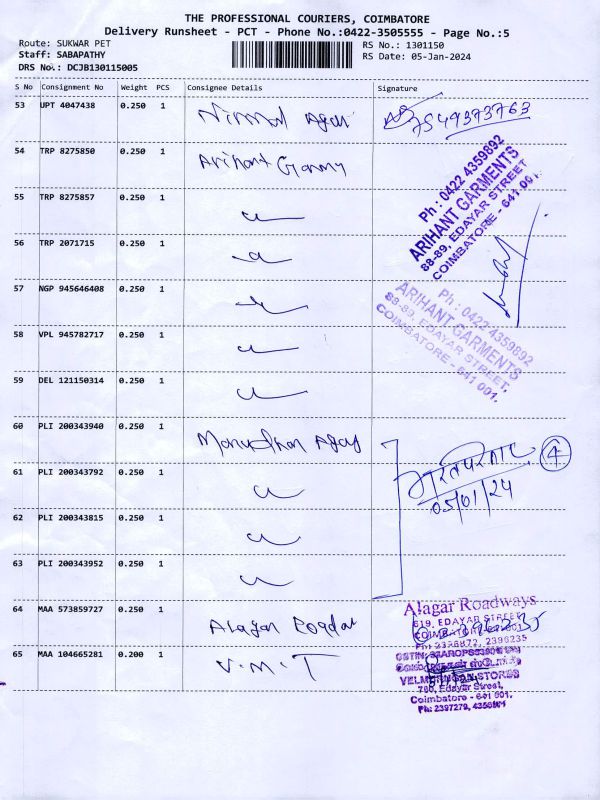 THE PROFESSIONAL COURIERS, COIMBATORE
Delivery Runsheet - PCT - Phone No.:0422-3505555 - Page No.:5
Route: SUKWAR PET
RS No.: 1301150
Staff: SABAPATHY
RS Date: 05-Jan-2024
DRS No.: DCJB130115005
S No Consignment No Weight PCS Consignee Details Signature
53 UPT 4047438 0.250 1 Nirmal
54 TRP 8275850 0.250 1 Arihant
55 TRP 8275857 0.250 1
56 TRP 2071715 0.250 1
57 NGP 945646408 0.250 1
58 VPL 945782717 0.250 1
59 DEL 121150314 0.250 1
60 PLI 200343940 0.250 1
61 PLI 200343792 0.250 1
62 PLI 200343815 0.250 1
63 PLI 200343952 0.250 1
64 MAA 573859727 0.250 1 Alagar
65 MAA 104665281 0.200 1 V.M.T
7549373763
Ph : 0422 4359892
ARIHANT GARMENTS
88-89, EDAYAR STREET
COIMBATORE - 641 001.
Ph : 0422 4359892
ARIHANT GARMENTS
88-89, EDAYAR STREET,
COIMBATORE - 641 001.
4
05/01/24
Alagar Roadways
619, EDAYAR STREET
VELMURUGAN STORES
780, Edayar Street,
Coimbatore - 641 001.